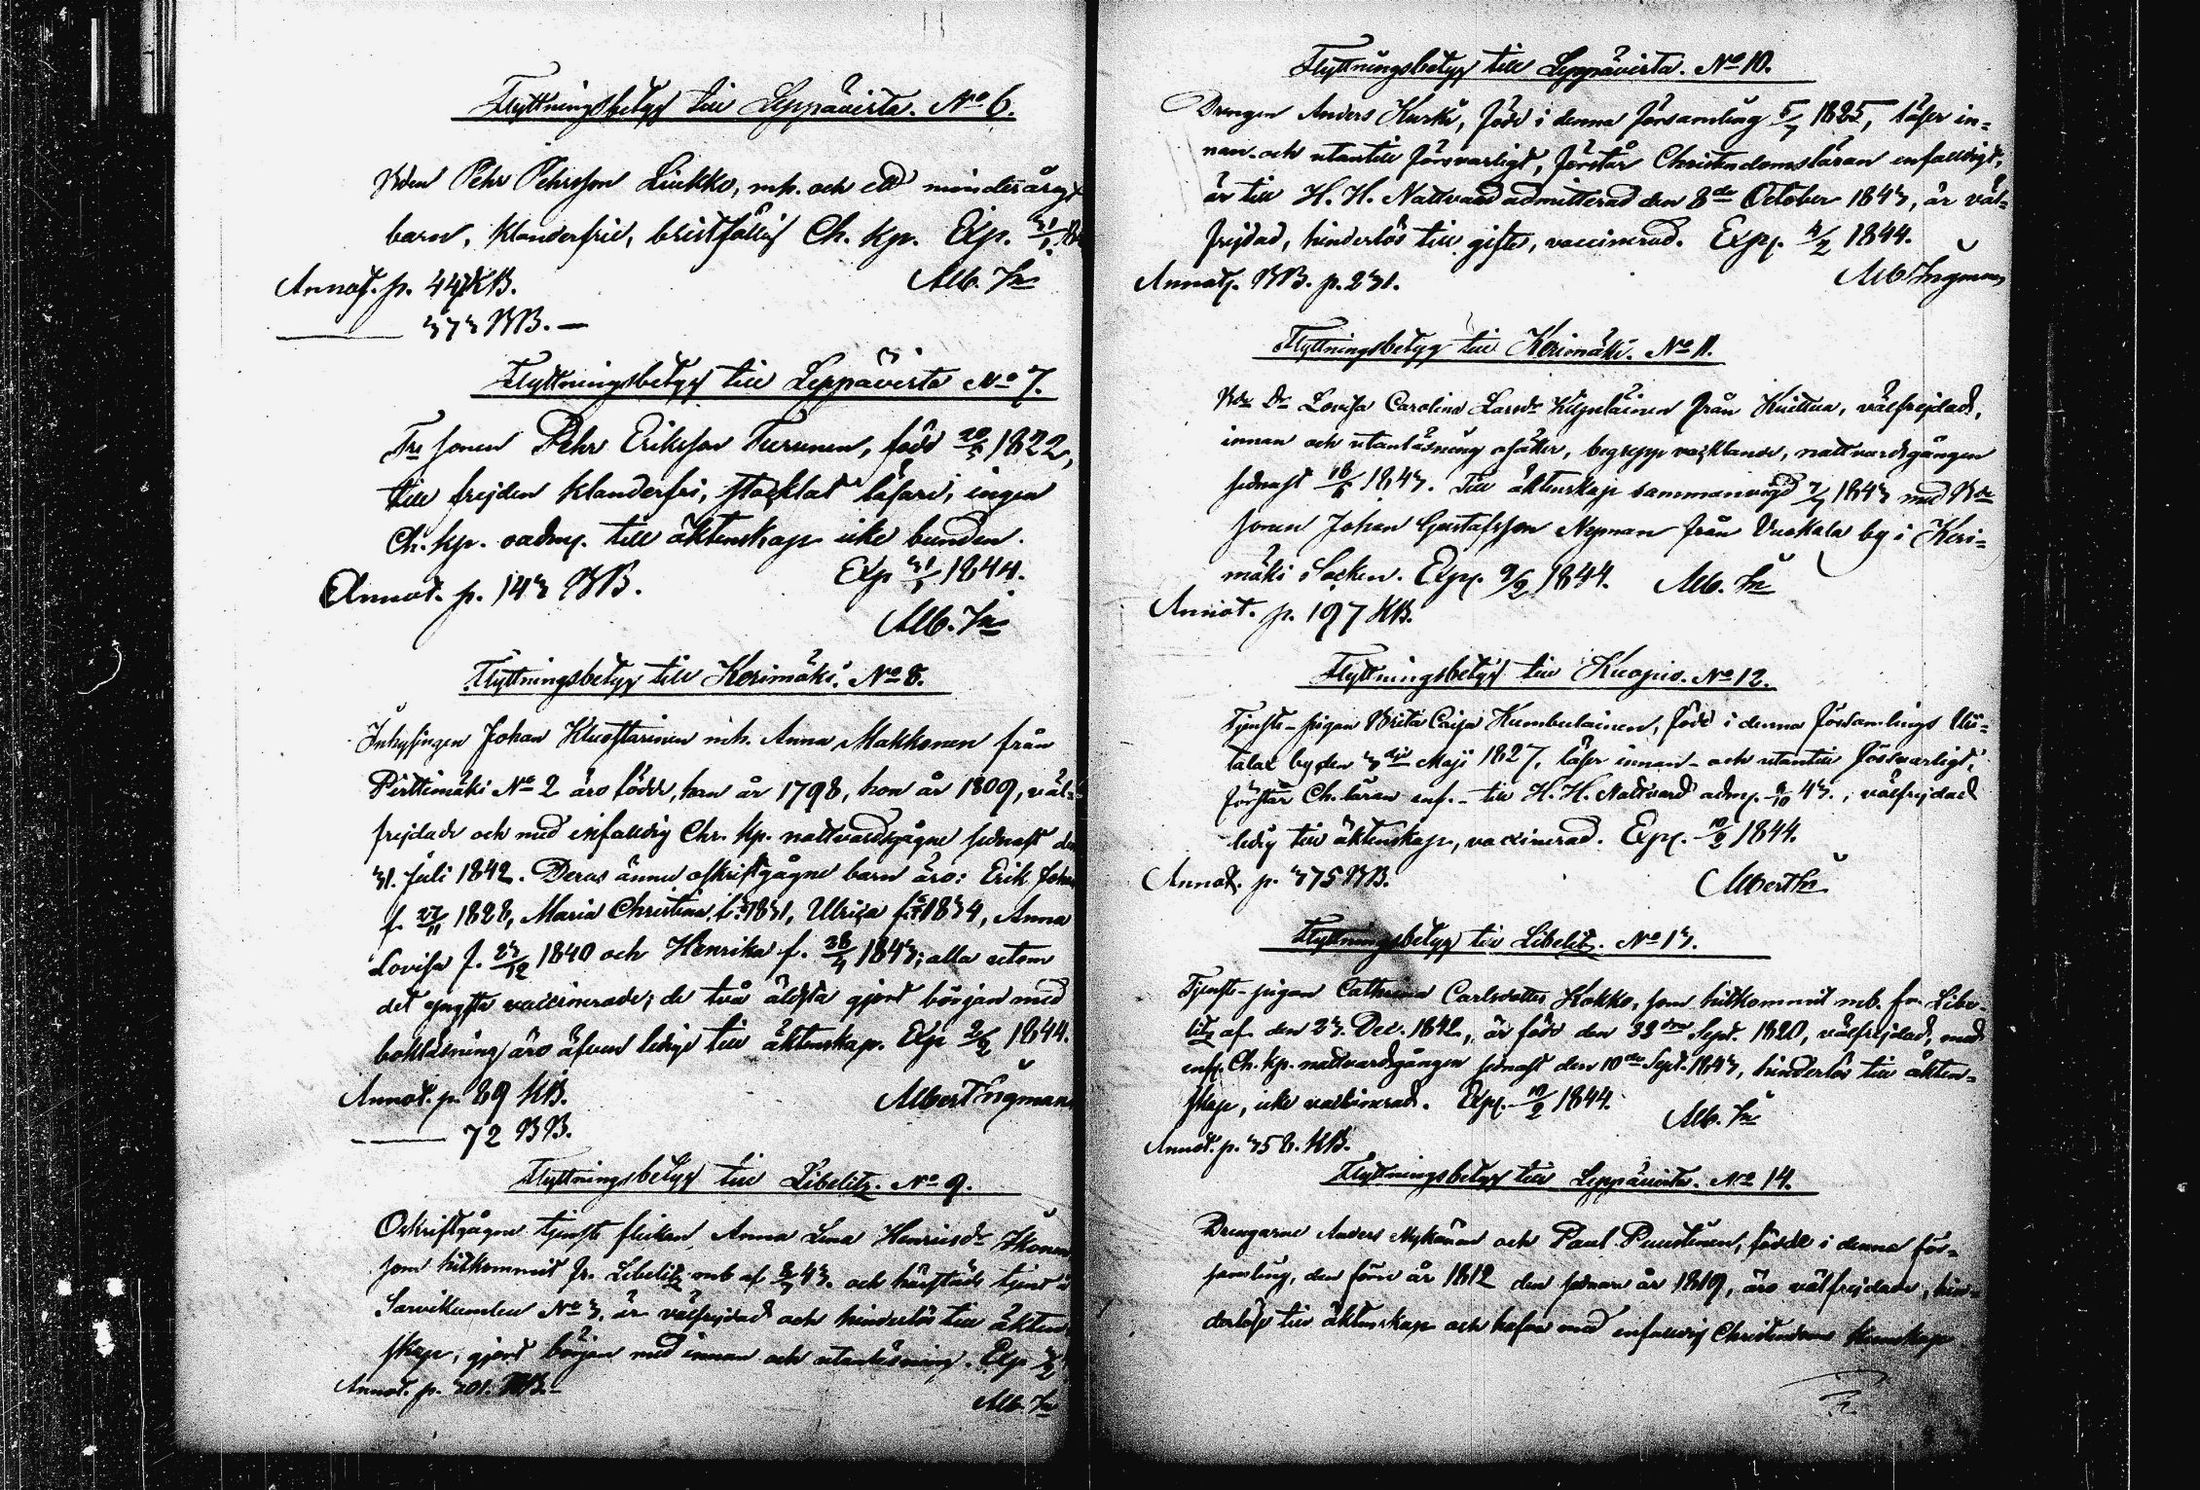 Flyttningsbetyg till Leppävirta. No 6.
Bden Pehr Pehrsson Liukko, m.h. och ett minderårigt
barn, klanderfrie, bristfällig Ch. kp. Exp. 31/1
Annot. p. 447 KB. Alb. In
373 BB. —
Flyttningsbetyg till Leppävirta No 7.
sonen Pehr Eriksson Turunen, född 1822,
till frejden klanderfri, stafvar läsare, ingen
Ch. kp. till äktenskap icke bunden.
Annot. p. 143 BB. Exp 31/1 1844.
Alb. In
Flyttningsbetyg till Kerimäki. No 8.
Inhysingen Johan Kluustarinen m.h. Anna Makkonen från
Pirttimäki No 2 äro födde, han år 1798, hon år 1809, väl-
frejdade och med enfaldig Chr. kp. nattvardsgågne sednast den
31. Juli 1842. Deras ännu oskriftgågne barn äro: Erik Johan
f. 27/11 1828, Maria Christina, f. 1831, Ulrica f. 1834, Anna
Lovisa f. 23/12 1840 och Henrika f. 28/4 1843; alla utom
det yngsta vaccinerade; de två äldsta gjort början med
bokläsning, äro äfven ledige till äktenskap. Exp 2/2 1844.
Annot. p. 89 KB. Albert Ingman
72 BB.
Flyttningsbetyg till Libelitz. No 9.
Oskriftgågne tjenste flickan, Anna Lena Henricsdr Ikonen
som hitkommit fr. Libelitz mb af 43. och härstädes tjent i
Sarvikumpu No 3, är välfrejdad och hinderlös till äkten-
skap, gjort början med innan och utanläsning. Exp
Annot. p. 301. BB.
Alb. In
Flyttningsbetyg till Leppävirta. No 10.
Drengen Anders Kurki, född i denna församling 5/7 1825, läser in-
nan- och utantill försvarligt, förstår Christendomsläran enfaldigt,
är till H. H. Nattvard admitterad den 8de October 1843, är väl-
frejdad, hinderlös till gifte, vaccinerad. Exp. 4/2 1844.
Annot. BB. p. 231. Alb Ingman
Flyttningsbetyg till Kerimäki. No 11.
Bde Dr Lovisa Carolina Larsdr Kilpeläinen från Kuittua, välfrejdad,
innan och utanläsning osäker, begrepp vacklande, nattvardsgången
sednast 18/6 1843. Till äktenskap sammanvigd 7/7 1843 med Bde
sonen Johan Gustafsson Nyman från Vuokala by i Keri-
mäki Socken. Exp. 9/2 1844. Alb. In
Annot. p. 197 KB.
Flyttningsbetyg till Kuopio. No 12.
Tjenste-pigan Brita Caisa Humbulainen, född i denna församlings
by den 3dje Maji 1827, läser innan- och utantill försvarligt,
förstår Ch. läran enf. - till H. H. Nattvard adm. 8/10 43., välfrejdad
ledig till äktenskap, vaccinerad. Exp. 10/2 1844.
Annot. p. 375 BB. Albert In
Flyttningsbetyg till Libelitz. No 13.
Tjenste-pigan Cathrina Carlsdotter Kokko, som hitkommit mb. fr. Libe-
litz af den 23. Dec. 1842, är född den Sept. 1820, välfrejdad, med
enf. Ch. kp. nattvardsgången sednast den 10de Sept. 1843, hinderlös till äkten-
skap, icke vaccinerad. Exp. 10/2 1844. Alb. In
Annot. p. 358. KB.
Flyttningsbetyg till Leppävirta. No 14.
Drengarne Anders Mykänen och Paul Puustinen, födde i denna för-
samling, den förre år 1812 den sednare år 1819, äro välfrejdade, hin-
derlöse till äktenskap och hafva med enfaldig Christendoms kunskap